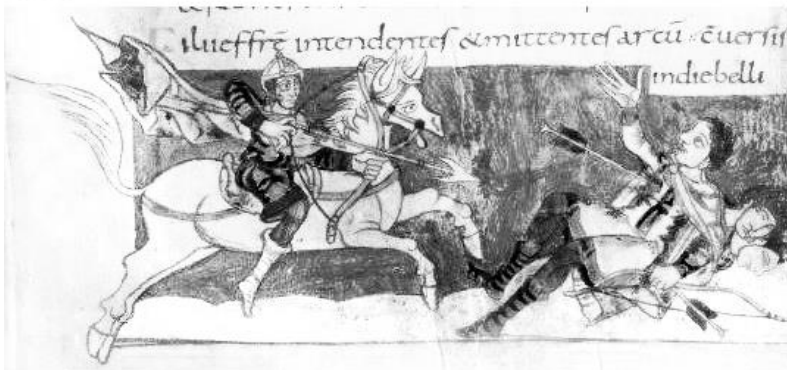 Filii effrē intendentes & mittentes arcū c̄uersi s
in die belli